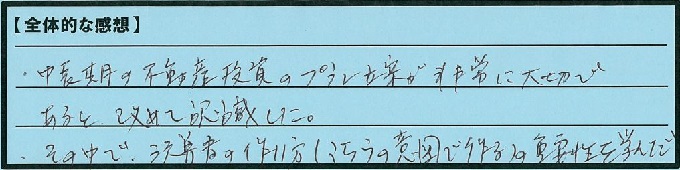 【全体的な感想】
・中長期の不動産投資のプラン立案が非常に大切で
あると改めて認識した。
・その中で、決算書の作り方(こちらの意図で作る)の重要性を学んだ